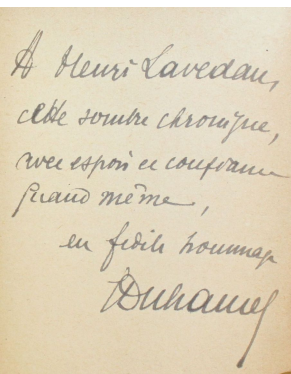 A Henri Lavedan,
cette sombre chronique,
avec espoir et confiance
quand même,
en fidèle hommage
GDuhamel